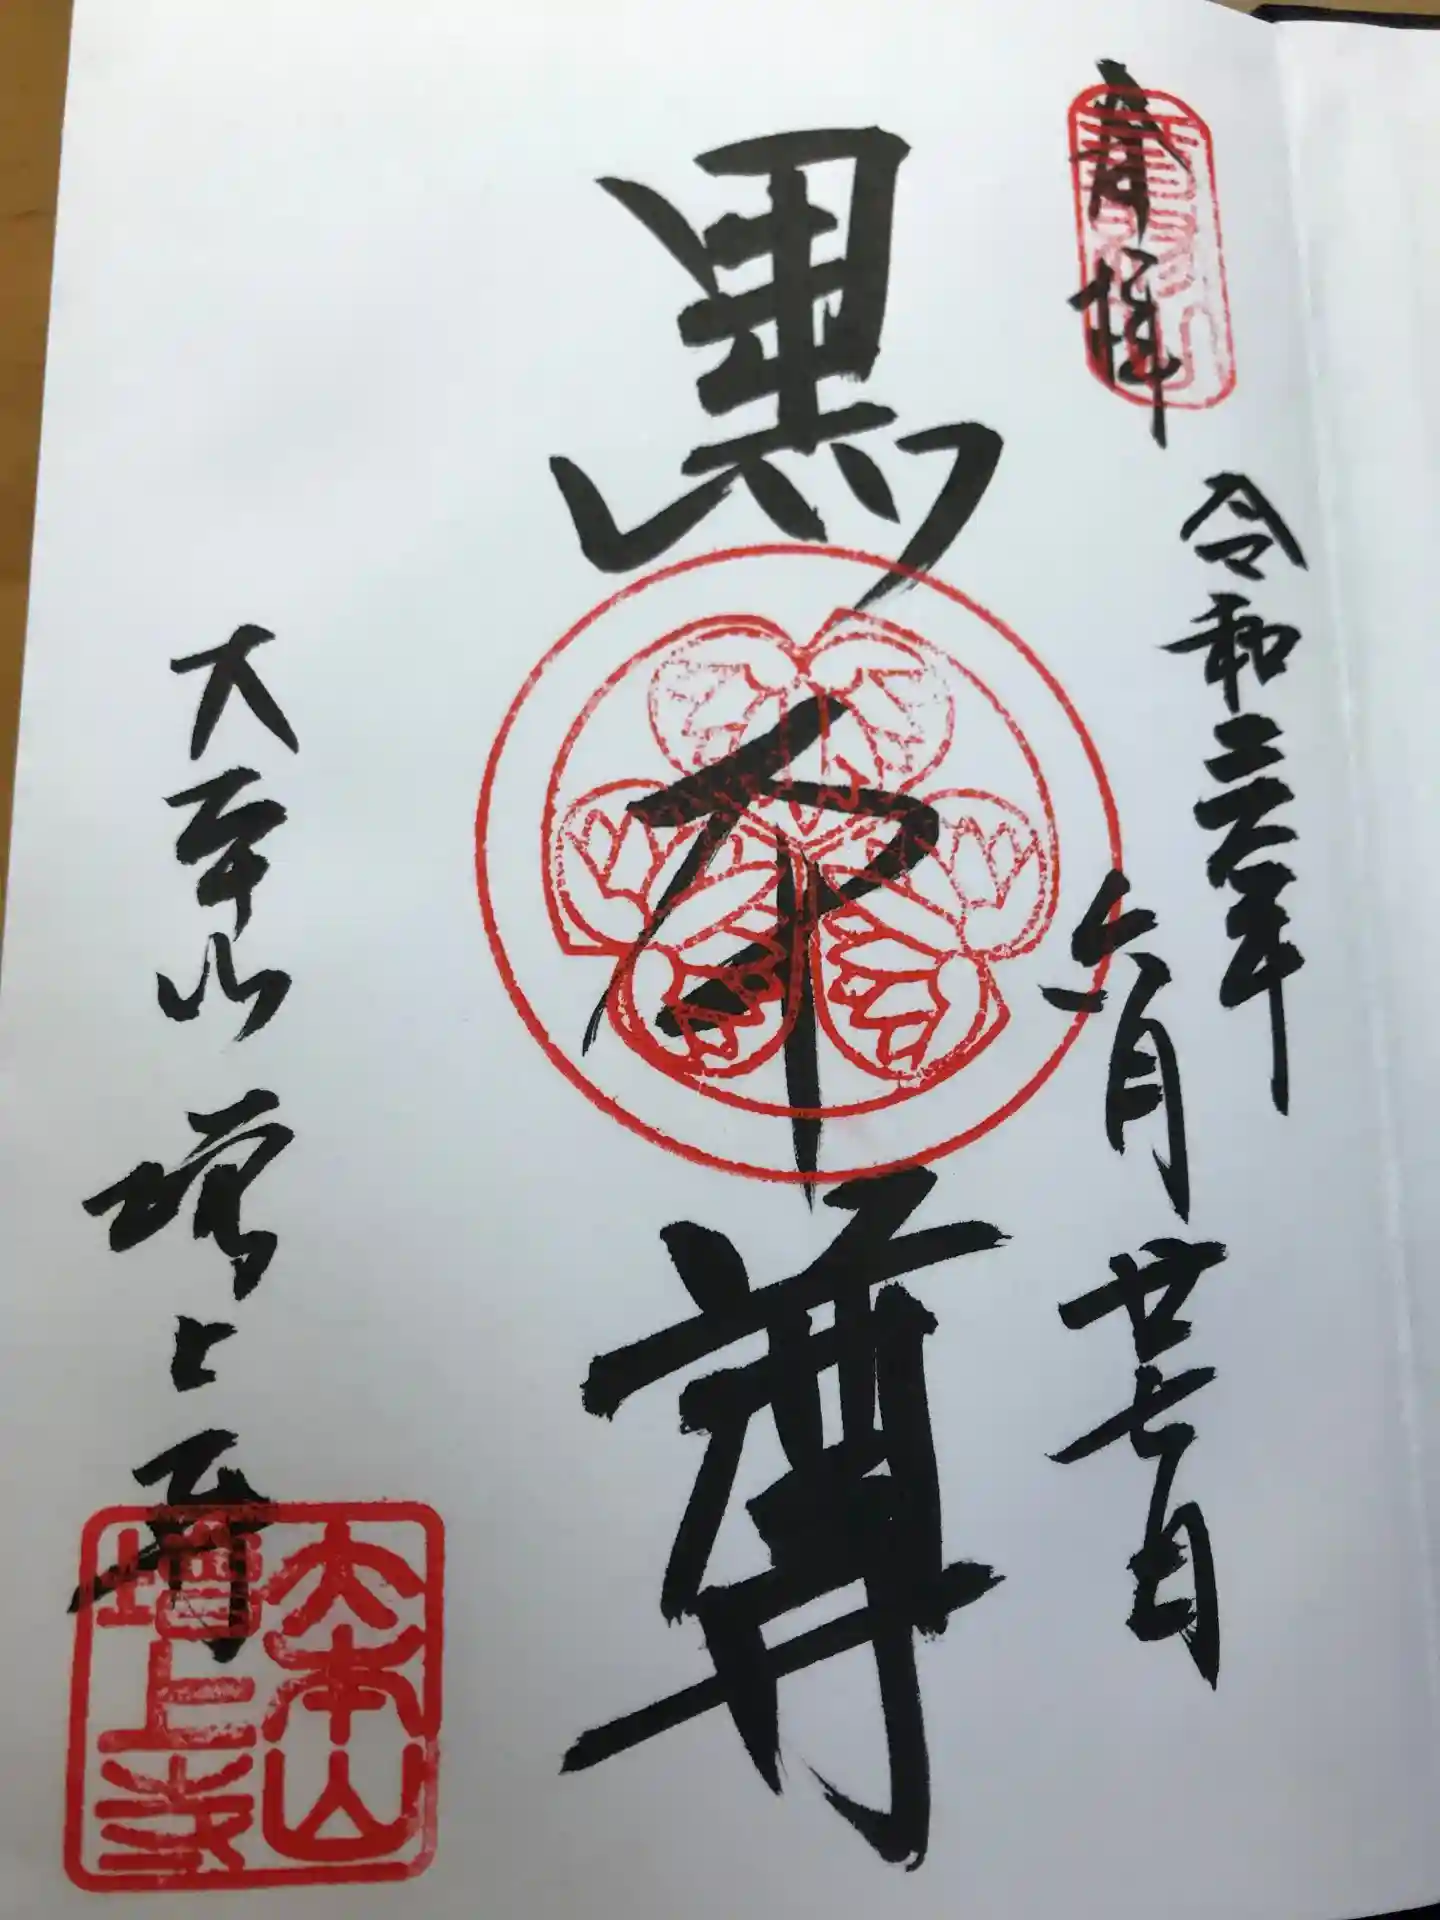 奉拝
令和 年
六月廿七日
黒本尊
大本山 増上寺
大本山
増上寺